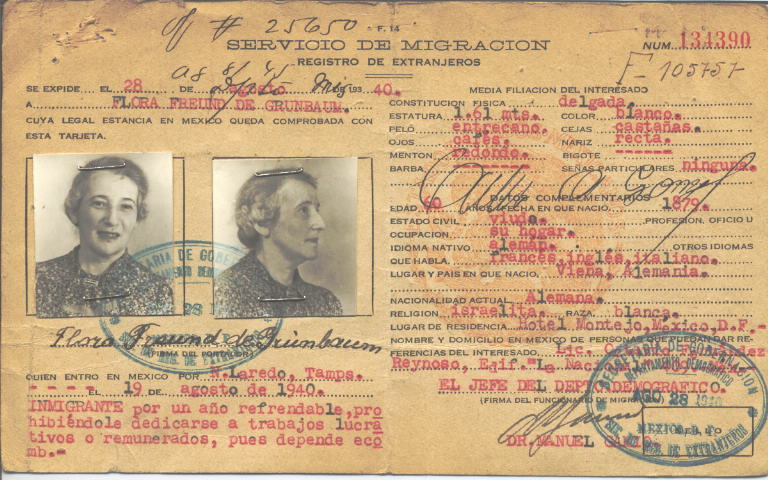 # 25650
F.14
SERVICIO DE MIGRACION
REGISTRO DE EXTRANJEROS
NUM. 134390
F- 105751
SE EXPIDE EL 28 DE agosto DE 193 40.
A FLORA FREUND DE GRUNBAUM.
CUYA LEGAL ESTANCIA EN MEXICO QUEDA COMPROBADA CON
ESTA TARJETA.
Flora Freund de Grünbaum
(FIRMA DEL PORTADOR)
QUIEN ENTRO EN MEXICO POR N.Laredo, Tamps.
- - - - EL 19 DE agosto de 1940.
INMIGRANTE por un año refrendable,pro
hibiéndole dedicarse a trabajos lucra
tivos o remunerados, pues depende eco
mb.-
MEDIA FILIACION DEL INTERESADO
CONSTITUCION FISICA delgada.
ESTATURA 1.61 mts. COLOR blanco.
PELO entrecano. CEJAS castañas.
OJOS cafés. NARIZ recta.
MENTON redondo. BIGOTE ------
BARBA ------ SEÑAS PARTICULARES ninguna.
DATOS COMPLEMENTARIOS
EDAD 60 AÑOS (FECHA EN QUE NACIO. 1879.
ESTADO CIVIL viuda. PROFESION, OFICIO U
OCUPACION su hogar.
IDIOMA NATIVO alemán. OTROS IDIOMAS
QUE HABLA. francés,inglés,italiano.
LUGAR Y PAIS EN QUE NACIO. Viena, Alemania.
NACIONALIDAD ACTUAL Alemana.
RELIGION israelita. RAZA blanca.
LUGAR DE RESIDENCIA Hotel Montejo,México,D.F.-
NOMBRE Y DOMICILIO EN MEXICO DE PERSONAS QUE PUEDAN DAR RE-
FERENCIAS DEL INTERESADO. Lic.
Reynoso, Edif. "La
EL JEFE DEL DEPTO DEMOGRAFICO.
(FIRMA DEL FUNCIONARIO DE MIGRACION)
DR. MANUEL GAMIO.
SELLO
AGO 28 1940
MEXICO, D. F.
REG. DE EXTRANJEROS